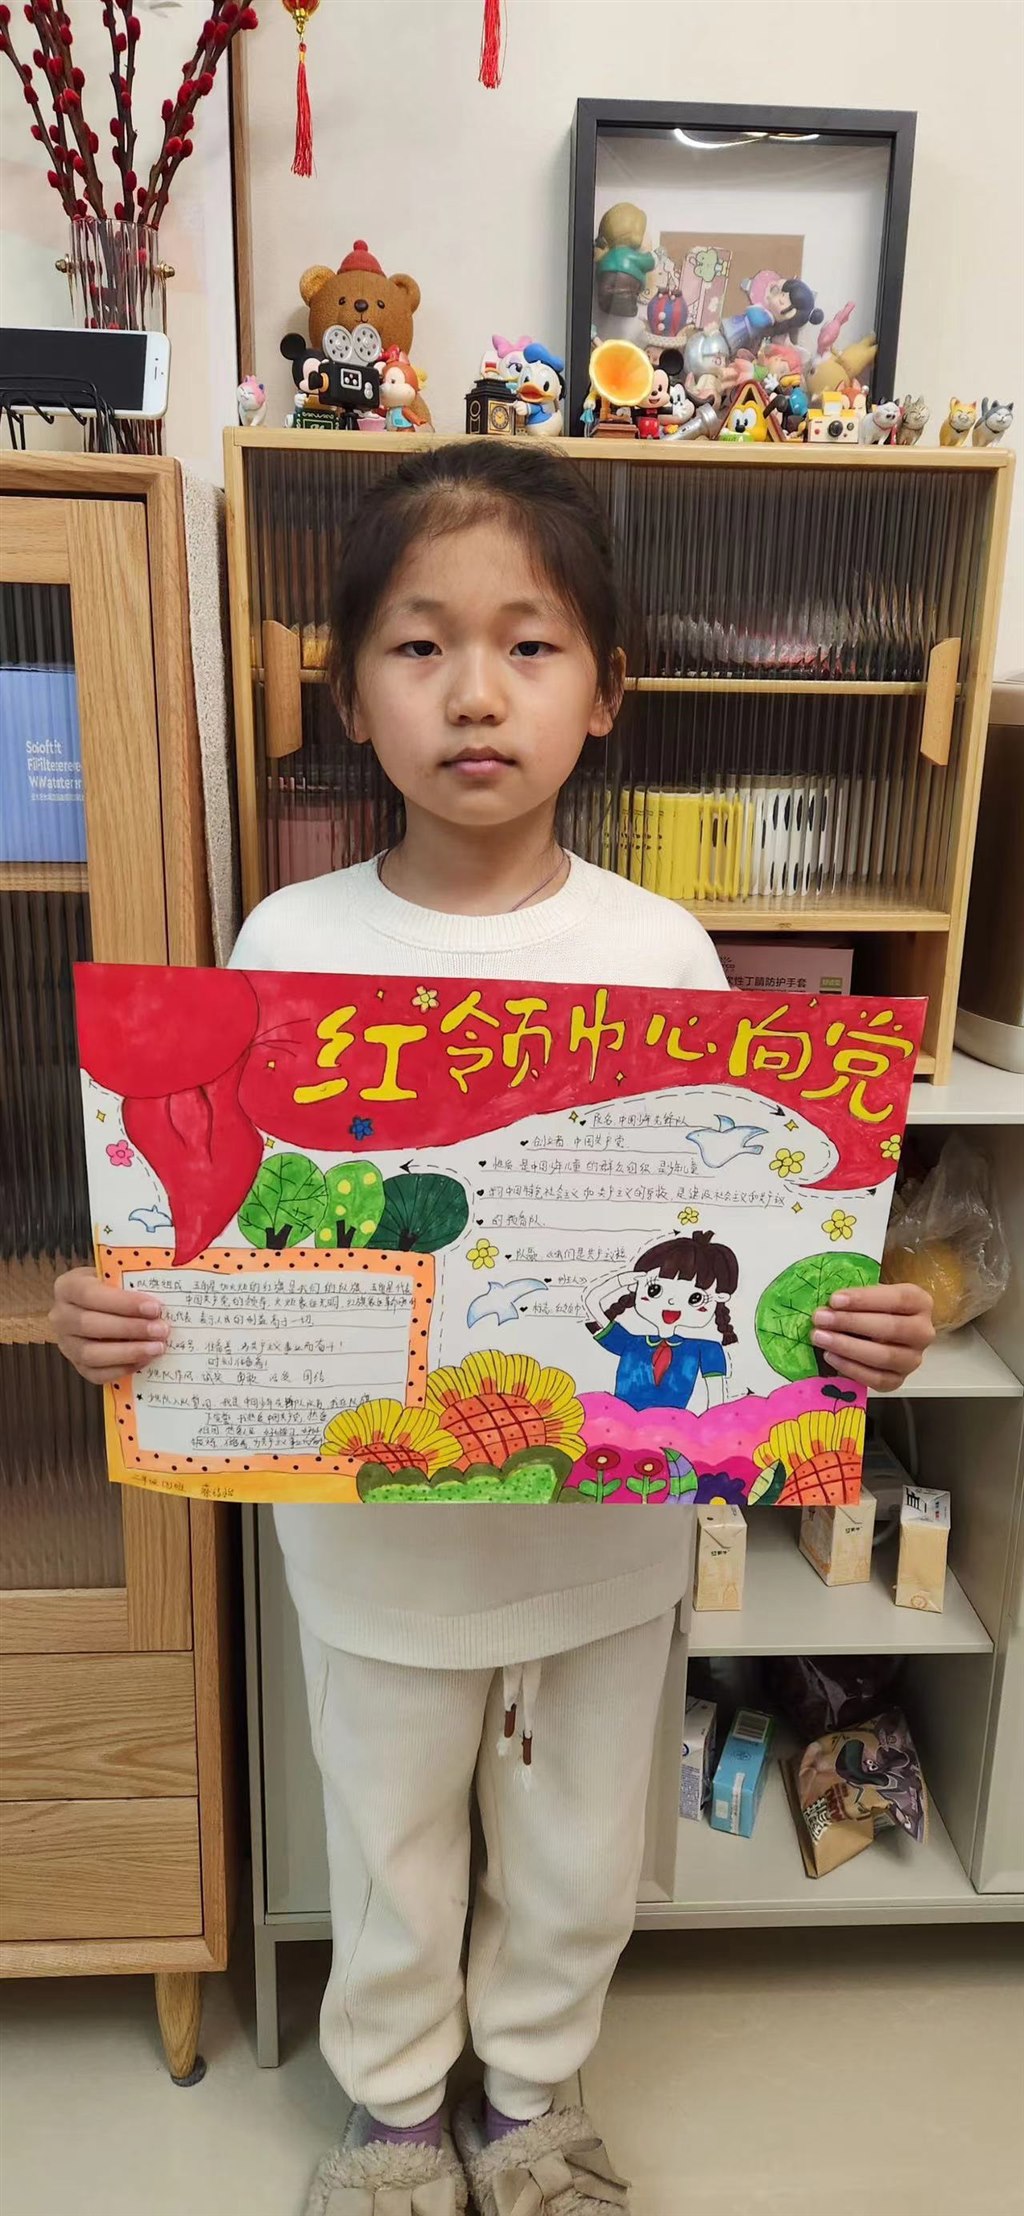 红领巾心向党
队名 中国少年先锋队
创立者 中国共产党
性质 是中国少年儿童的群众组织 是少年儿童
的中国特色社会主义和共产主义的学校 是建设社会主义和共产主义
的预备队
队歌 《我们是共产主义接
创立人
标志 红领巾
队旗组成 五角星加火炬的红旗是我们的队旗 五角星代表
中国共产党的领导 火炬象征光明 红旗象征革命胜利
礼代表 表示人民的利益高于一切
队呼号 准备着 为共产主义事业而奋斗!
时刻准备着!
少先队作风 诚实 勇敢 活泼 团结
少先队入队誓词 我是中国少年先锋队队员 我在队旗
下宣誓 我热爱中国共产党 热爱
祖国 热爱人民 好好学习 好好
锻炼 准备着 为共产主义事业
二年级
Soloftit
Fiiflteerere
WWatater
性丁腈防护手套